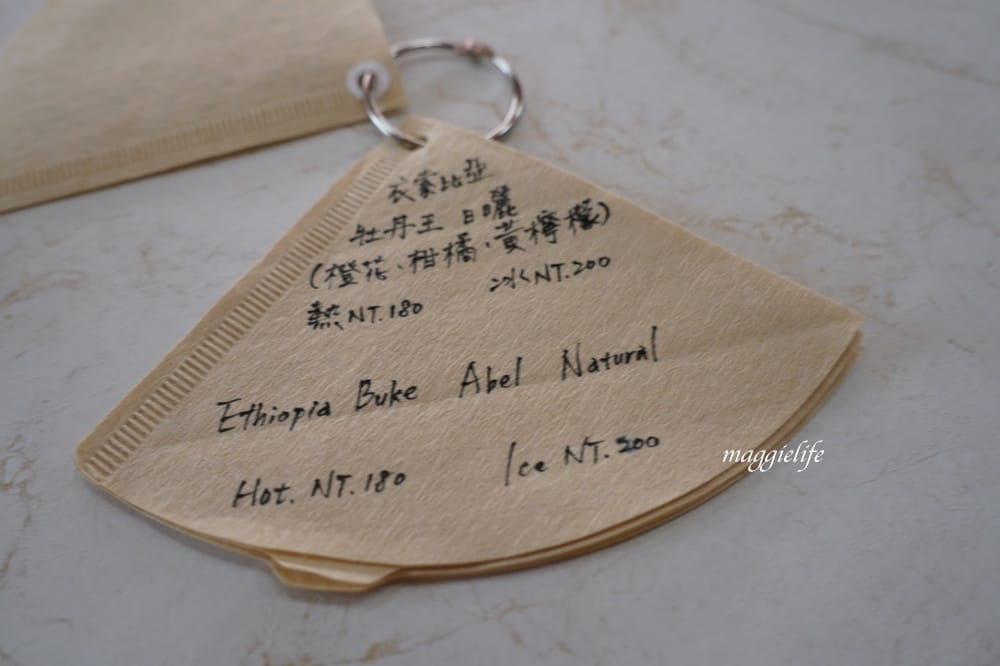 衣索比亞
牡丹王 日曬
(橙花、柑橘、黃檸檬)
熱NT.180 冰NT.200
Ethiopia Buke Abel Natural
Hot. NT.180 Ice NT.200
maggielife